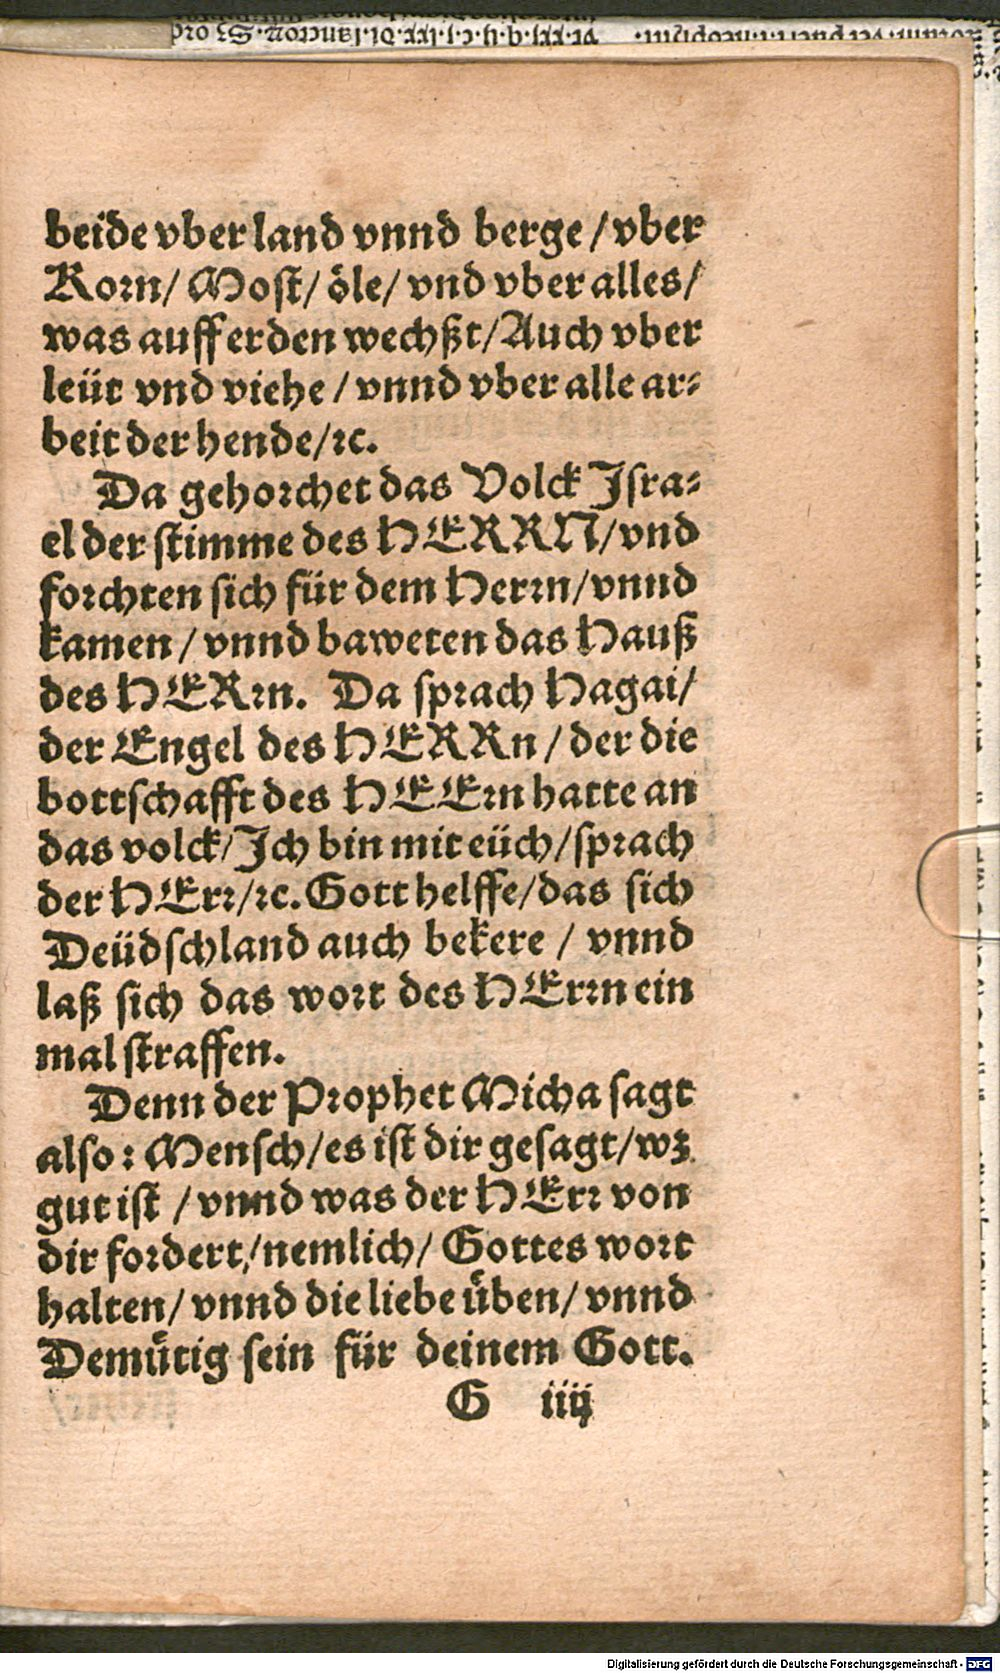 beide vber land vnnd berge / vber
Korn / Most / öle / vnd vber alles /
was auff erden wechßt / Auch vber
leüt vnd viehe / vnnd vber alle ar⸗
beit der hende / ꝛc.
Da gehorchet das Volck Iſra⸗
el der ſtimme des HERRN / vnd
forchten ſich für dem Herrn / vnnd
kamen / vnnd baweten das Hauß
des HERrn. Da ſprach Hagai /
der Engel des HERRn / der die
bottſchafft des HEErn hatte an
das volck / Ich bin mit eüch / ſprach
der HErr / ꝛc. Gott helffe / das ſich
Deüdſchland auch bekere / vnnd
laß ſich das wort des HErrn ein
mal ſtraffen.
Denn der Prophet Micha ſagt
alſo : Menſch / es iſt dir geſagt / wz
gut iſt / vnnd was der HErr von
dir fordert, / nemlich / Gottes wort
halten / vnnd die liebe uͤben / vnnd
Demuͤtig ſein für deinem Gott.
G iiij
Digitalisierung gefördert durch die Deutsche Forschungsgemeinschaft - DFG